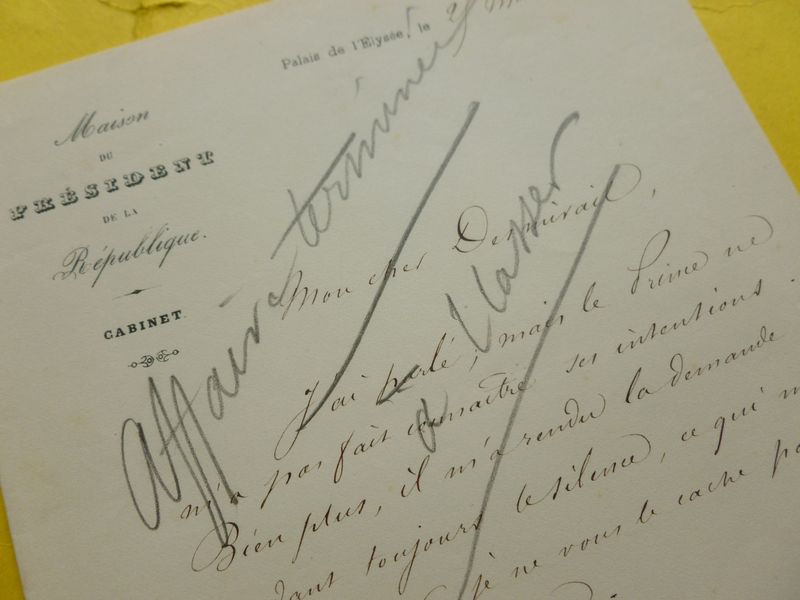 Palais de l'Elysée, le
Maison
DU
PRÉSIDENT
DE LA
République.
CABINET.
Affaire terminée
à classer
Mon cher Desmirail,
J'ai parlé, mais le Prince ne
m'a pas fait connaître ses intentions.
Bien plus, il m'a rendu la demande
dant toujours le silence, ce qui m
je ne vous le cache pa